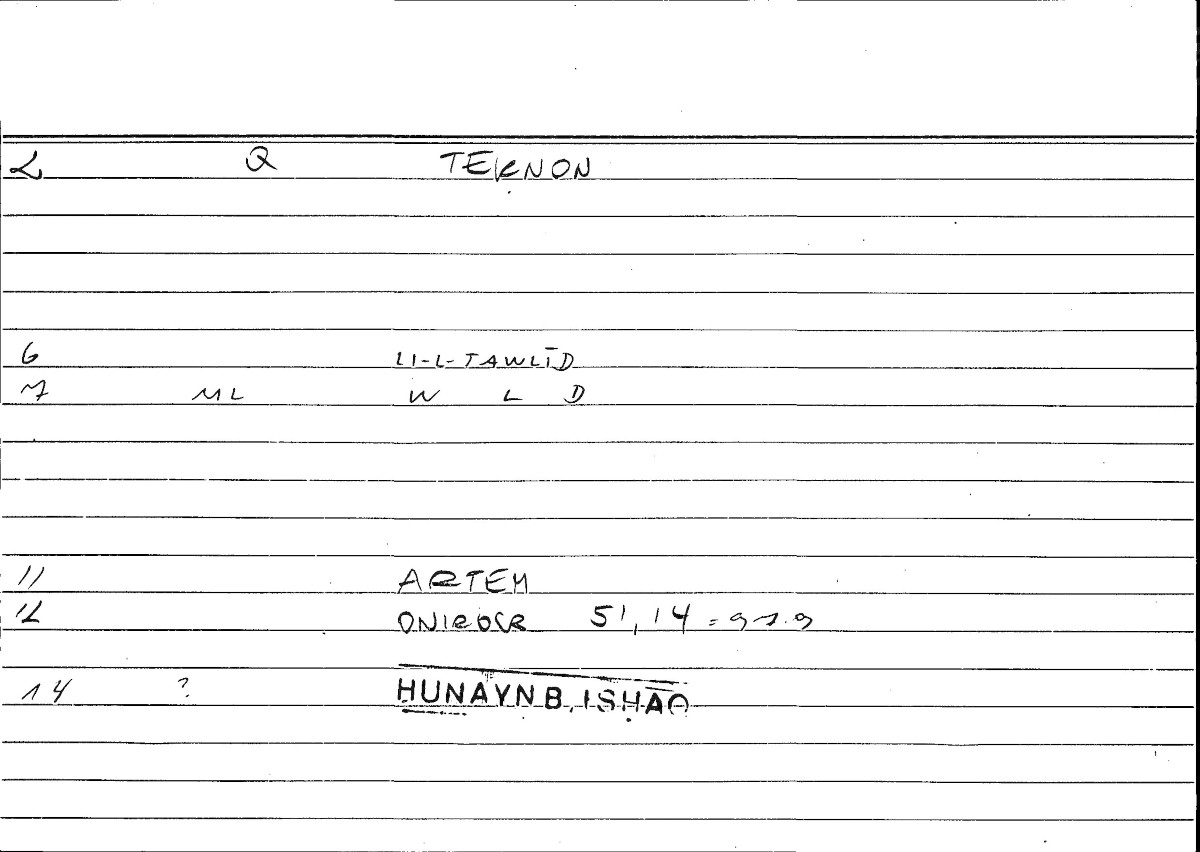 2 Q TEKNON
6 LI-L-TAWLĪD
7 ML W L D
11 ARTEM
12 ONIROCR 51,14 = 97.9
14 ? HUNAYN B. ISḤĀQ